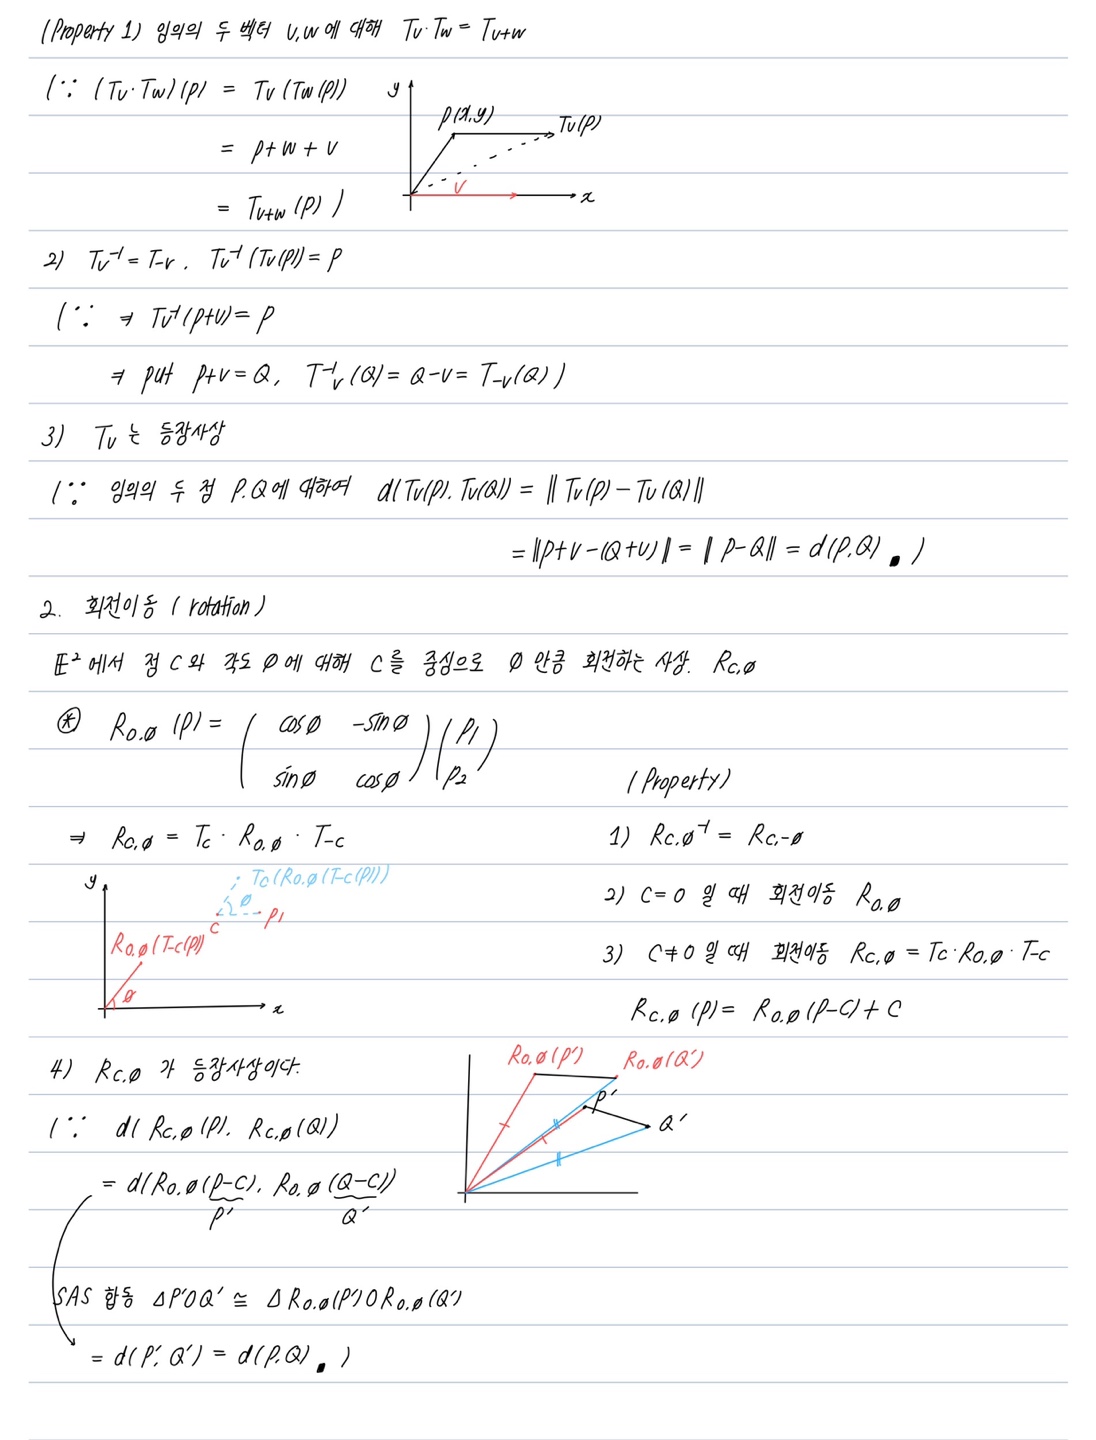 (Property 1) 임의의 두 벡터 v,w에 대해 Tv·Tw = Tv+w
(∵ (Tv·Tw)(p) = Tv(Tw(p))
= p+w+v
= Tv+w(p))
y
p(x,y)
Tv(p)
v
x
2) Tv⁻¹ = T-v. Tv⁻¹(Tv(p)) = p
(∵ ⇒ Tv⁻¹(p+v) = p
⇒ put p+v = Q, T⁻¹v(Q) = Q-v = T-v(Q))
3) Tv는 등장사상
(∵ 임의의 두 점 P.Q에 대하여 d(Tv(p). Tv(Q)) = ‖Tv(p) - Tv(Q)‖
= ‖p+v-(Q+v)‖ = ‖p-Q‖ = d(P.Q) ▪ )
2. 회전이동 (rotation)
E²에서 점 C와 각도 ø에 대해 C를 중심으로 ø만큼 회전하는 사상. Rc,ø
⊛ Ro.ø(p) = ( cosø -sinø ) ( p1 )
sinø cosø p2
⇒ Rc,ø = Tc · Ro.ø · T-c
y
Tc(Ro.ø(T-c(p)))
ø
c
p1
Ro.ø(T-c(p))
ø
x
(Property)
1) Rc,ø⁻¹ = Rc,-ø
2) C=0 일 때 회전이동 Ro.ø
3) C≠0 일 때 회전이동 Rc,ø = Tc·Ro.ø·T-c
Rc,ø(p) = Ro.ø(p-c)+c
4) Rc,ø가 등장사상이다.
(∵ d(Rc,ø(p). Rc,ø(Q))
= d(Ro.ø(p-c). Ro.ø(Q-c))
p′ Q′
Ro.ø(p′) Ro.ø(Q′)
p′
Q′
SAS 합동 △P′OQ′ ≅ △Ro.ø(P′)ORo.ø(Q′)
= d(P′, Q′) = d(P.Q) ▪ )